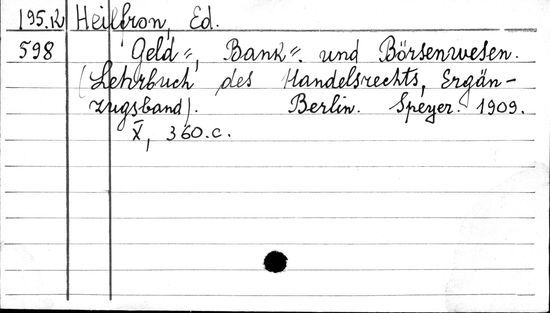 195.K Heilbron, Ed.
598 Geld=, Bank= und Börsenwesen.
(Lehrbuch des Handelsrechts, Ergän-
zugsband). Berlin. Speyer. 1909.
X, 360.c.